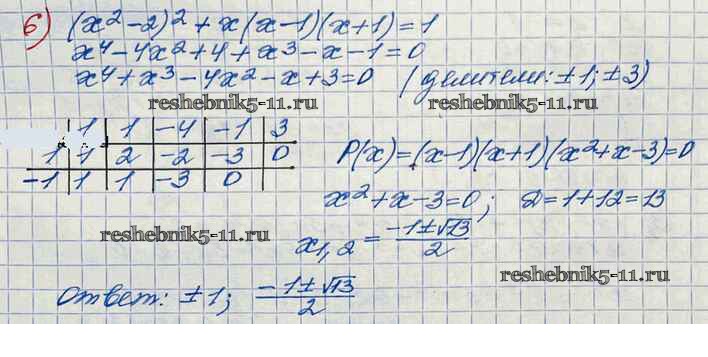 6) (x² - 2)² + x(x - 1)(x + 1) = 1
x⁴ - 4x² + 4 + x³ - x - 1 = 0
x⁴ + x³ - 4x² - x + 3 = 0 (делители: ±1; ±3)
reshebnik5-11.ru
reshebnik5-11.ru
1 1 -4 -1 3
1 1 2 -2 -3 0
-1 1 1 -3 0
P(x) = (x - 1)(x + 1)(x² + x - 3) = 0
x² + x - 3 = 0; D = 1 + 12 = 13
reshebnik5-11.ru
x₁,₂ = (-1 ± √13)/2
reshebnik5-11.ru
Ответ: ±1; (-1 ± √13)/2